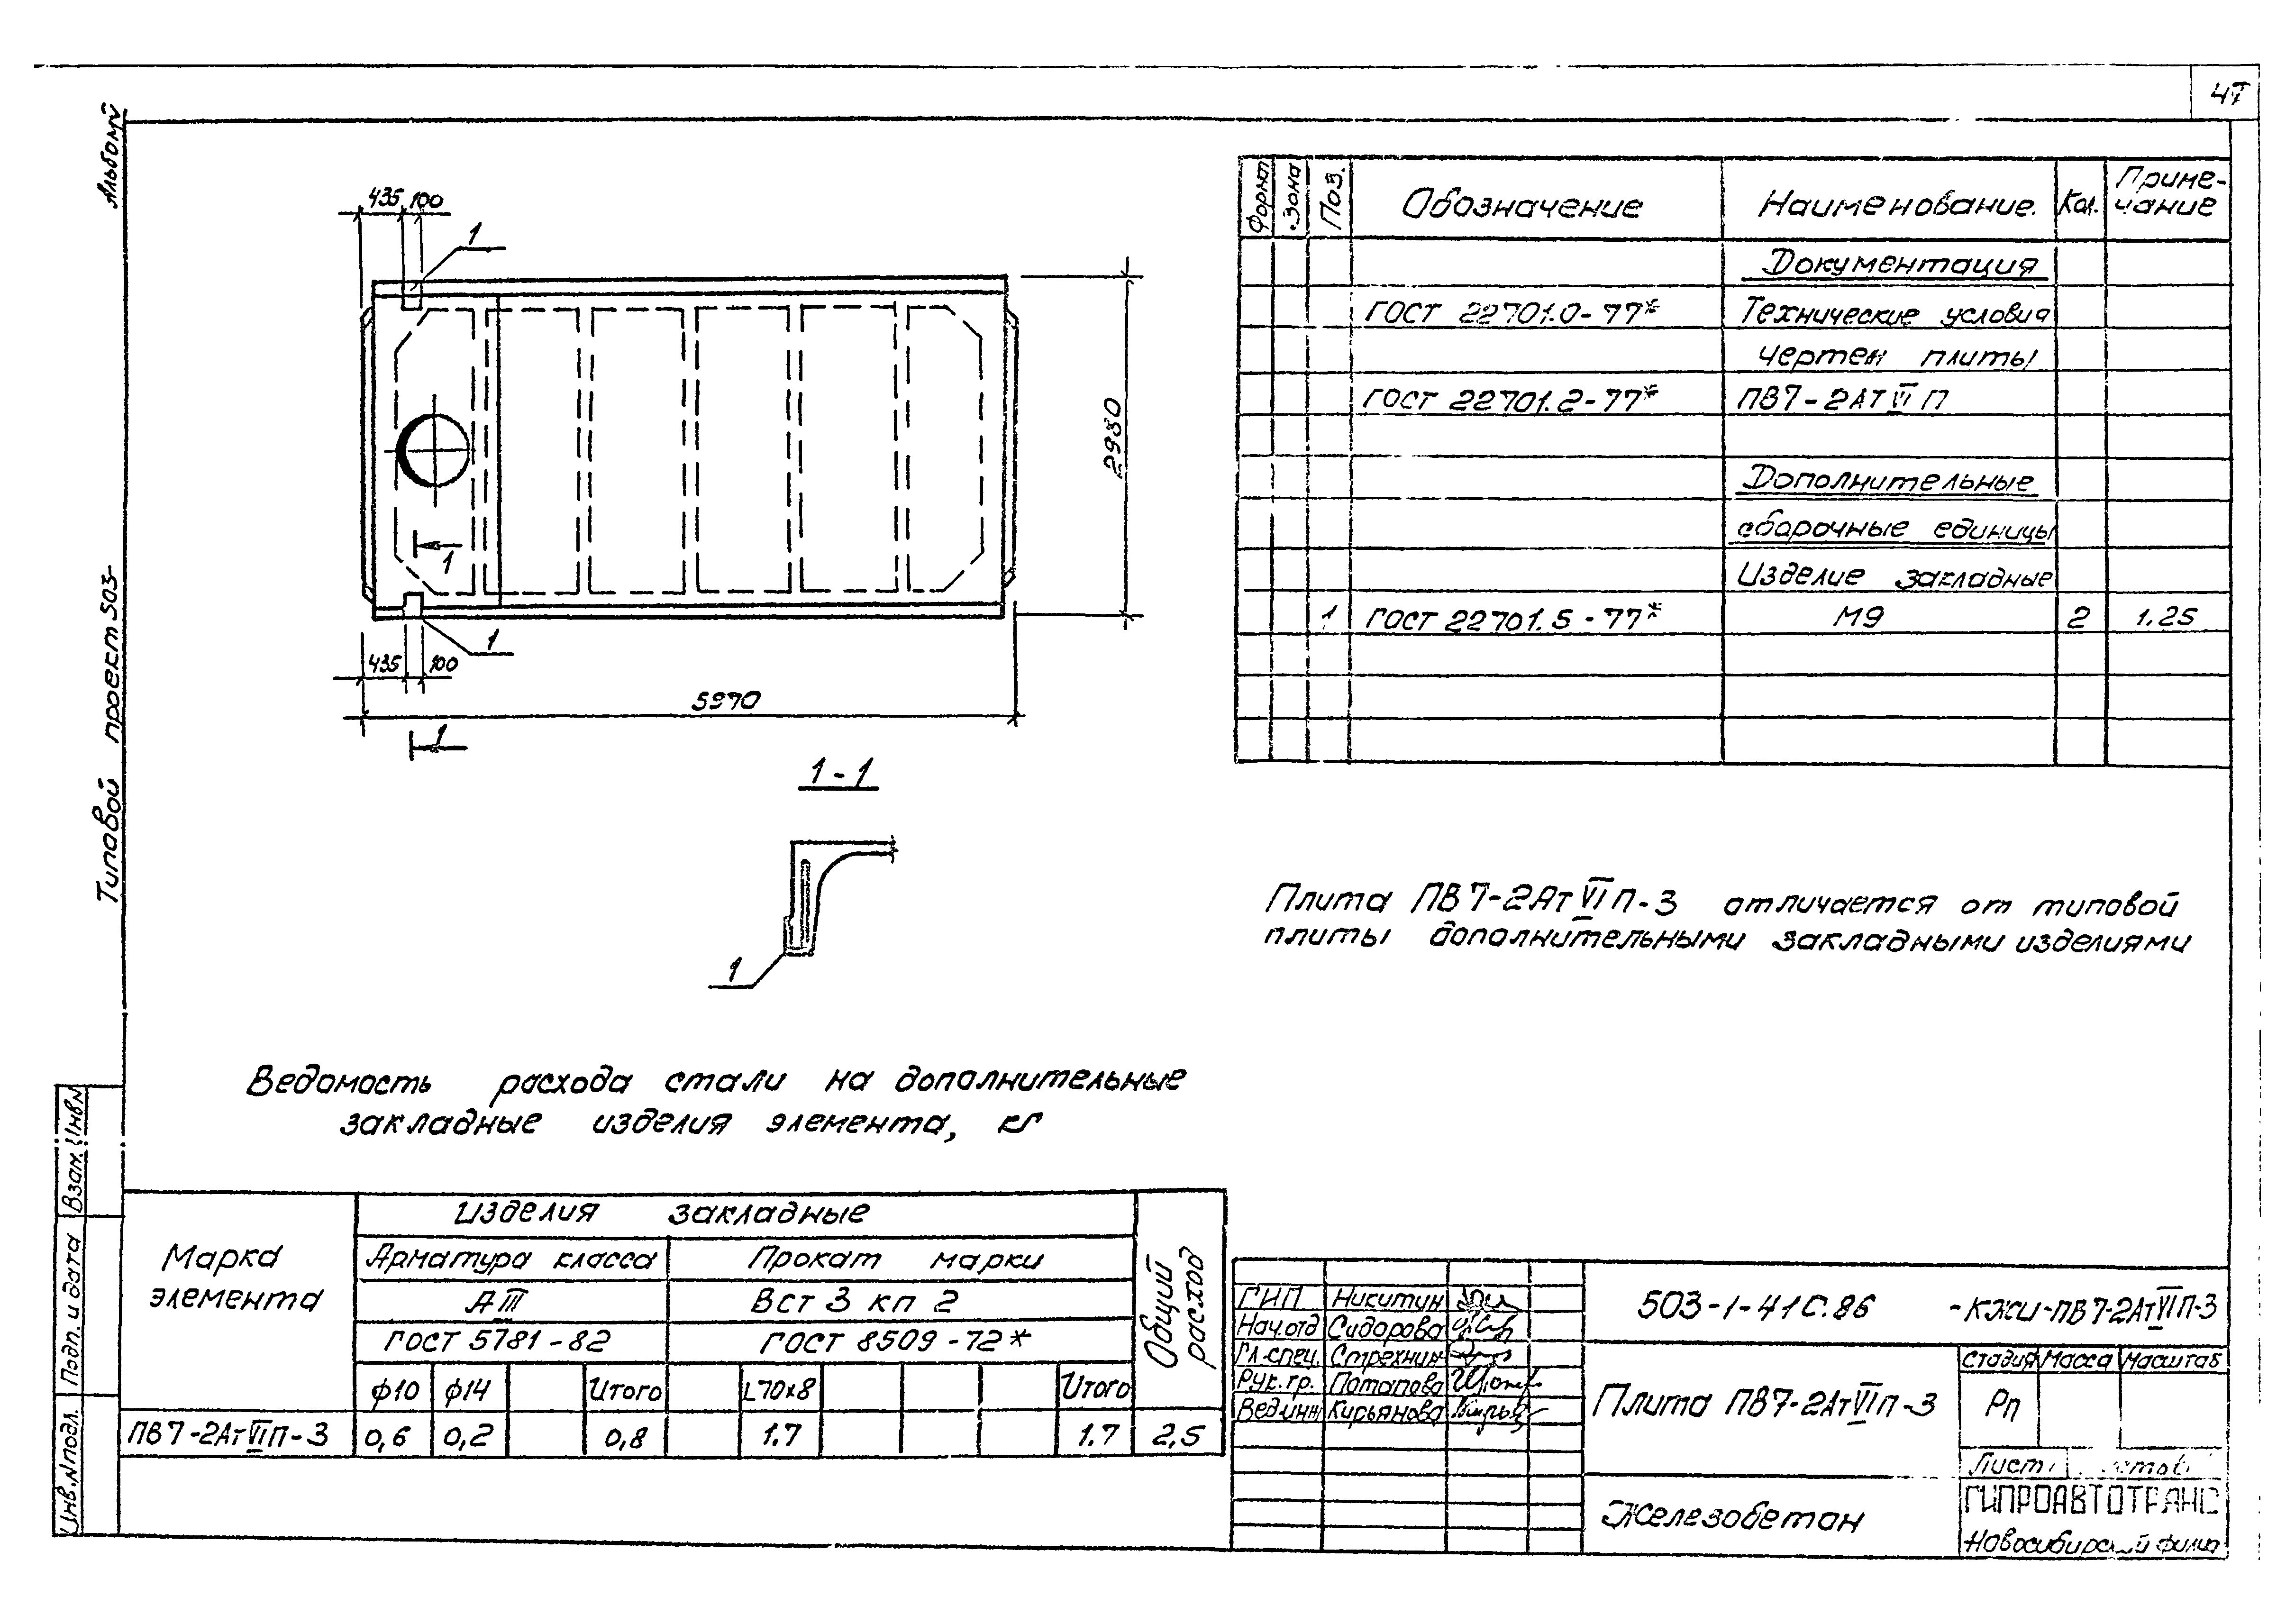 47
Альбом
Типовой проект 503-
435 100
1
1
1
435 100
5970
2980
1
1-1
1
Формат Зона Поз. Обозначение Наименование. Кол. Приме-
чание
Документация
ГОСТ 22701.0-77* Технические условия
Чертеж плиты
ГОСТ 22701.2-77* ПВ7-2АтVIП
Дополнительные
сборочные единицы
Изделие закладные
1 ГОСТ 22701.5-77* М9 2 1.25
Плита ПВ7-2АтVIП-3 отличается от типовой
плиты дополнительными закладными изделиями
Ведомость расхода стали на дополнительные
закладные изделия элемента, кг
Марка
элемента
Изделия закладные
Общий
расход
Арматура класса Прокат марки
АIII Вст 3 кп 2
ГОСТ 5781-82 ГОСТ 8509-72*
ф10 ф14 Итого L70х8 Итого
ПВ7-2АтVIП-3 0,6 0,2 0,8 1.7 1.7 2,5
ГИП Никитин
Нач.отд Сидорова
Гл.спец. Стрехнин
Рук.гр. Потапова
Вед.инж Кирьянова
503-1-41с.86 -КЖИ-ПВ7-2АтVIП-3
Плита ПВ7-2АтVIП-3
Стадия Масса Масштаб
Рп
Лист
Железобетон
ГИПРОАВТОТРАНС
Новосибирский
Взам. Инв.N
Подп. и дата
Инв.N подл.